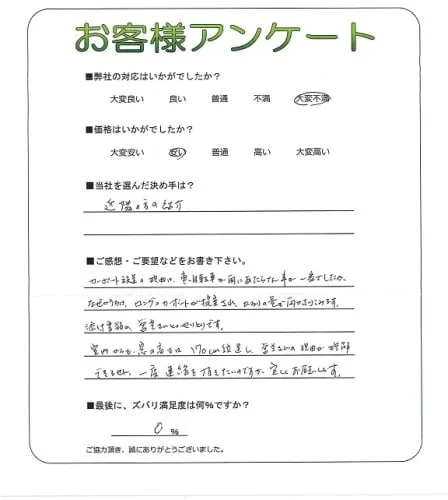 お客様アンケート
■弊社の対応はいかがでしたか?
大変良い 良い 普通 不満 大変不満
■価格はいかがでしたか?
大変安い 安い 普通 高い 大変高い
■当社を選んだ決め手は?
近隣の方の紹介
■ご感想・ご要望などをお書き下さい。
カーポート設置の理由は、車・自転車が雨にあたらない事が一番でしたが、
なぜか ロング カーポートが提案され、 雨が
営業さん です。
室内からも、窓の高さは170cm 営業さん 理由が理解
できません。一度連絡を頂きたいのですが、宜しくお願いします。
■最後に、ズバリ満足度は何%ですか?
0 %
ご協力頂き、誠にありがとうございました。